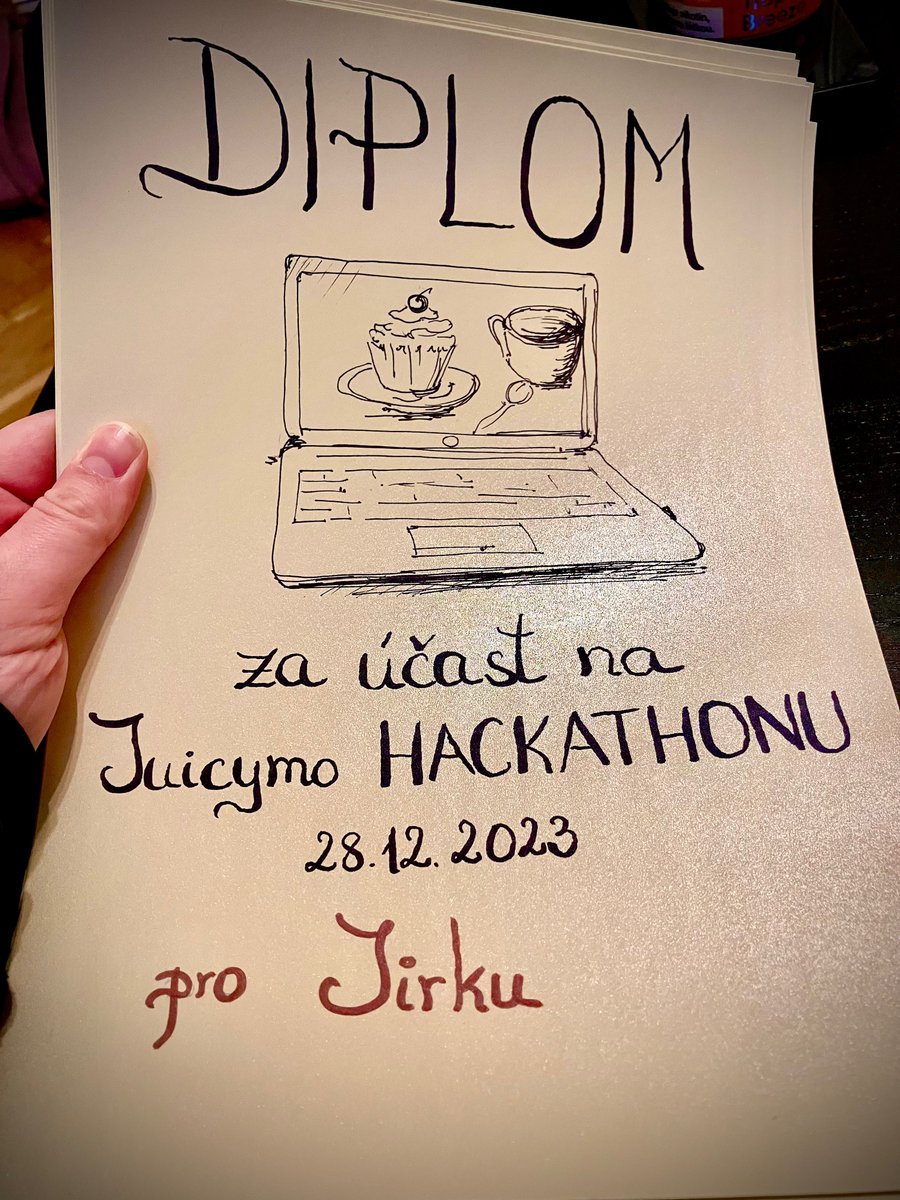 DIPLOM
za účast na
Juicymo HACKATHONU
28.12.2023
pro Jirku